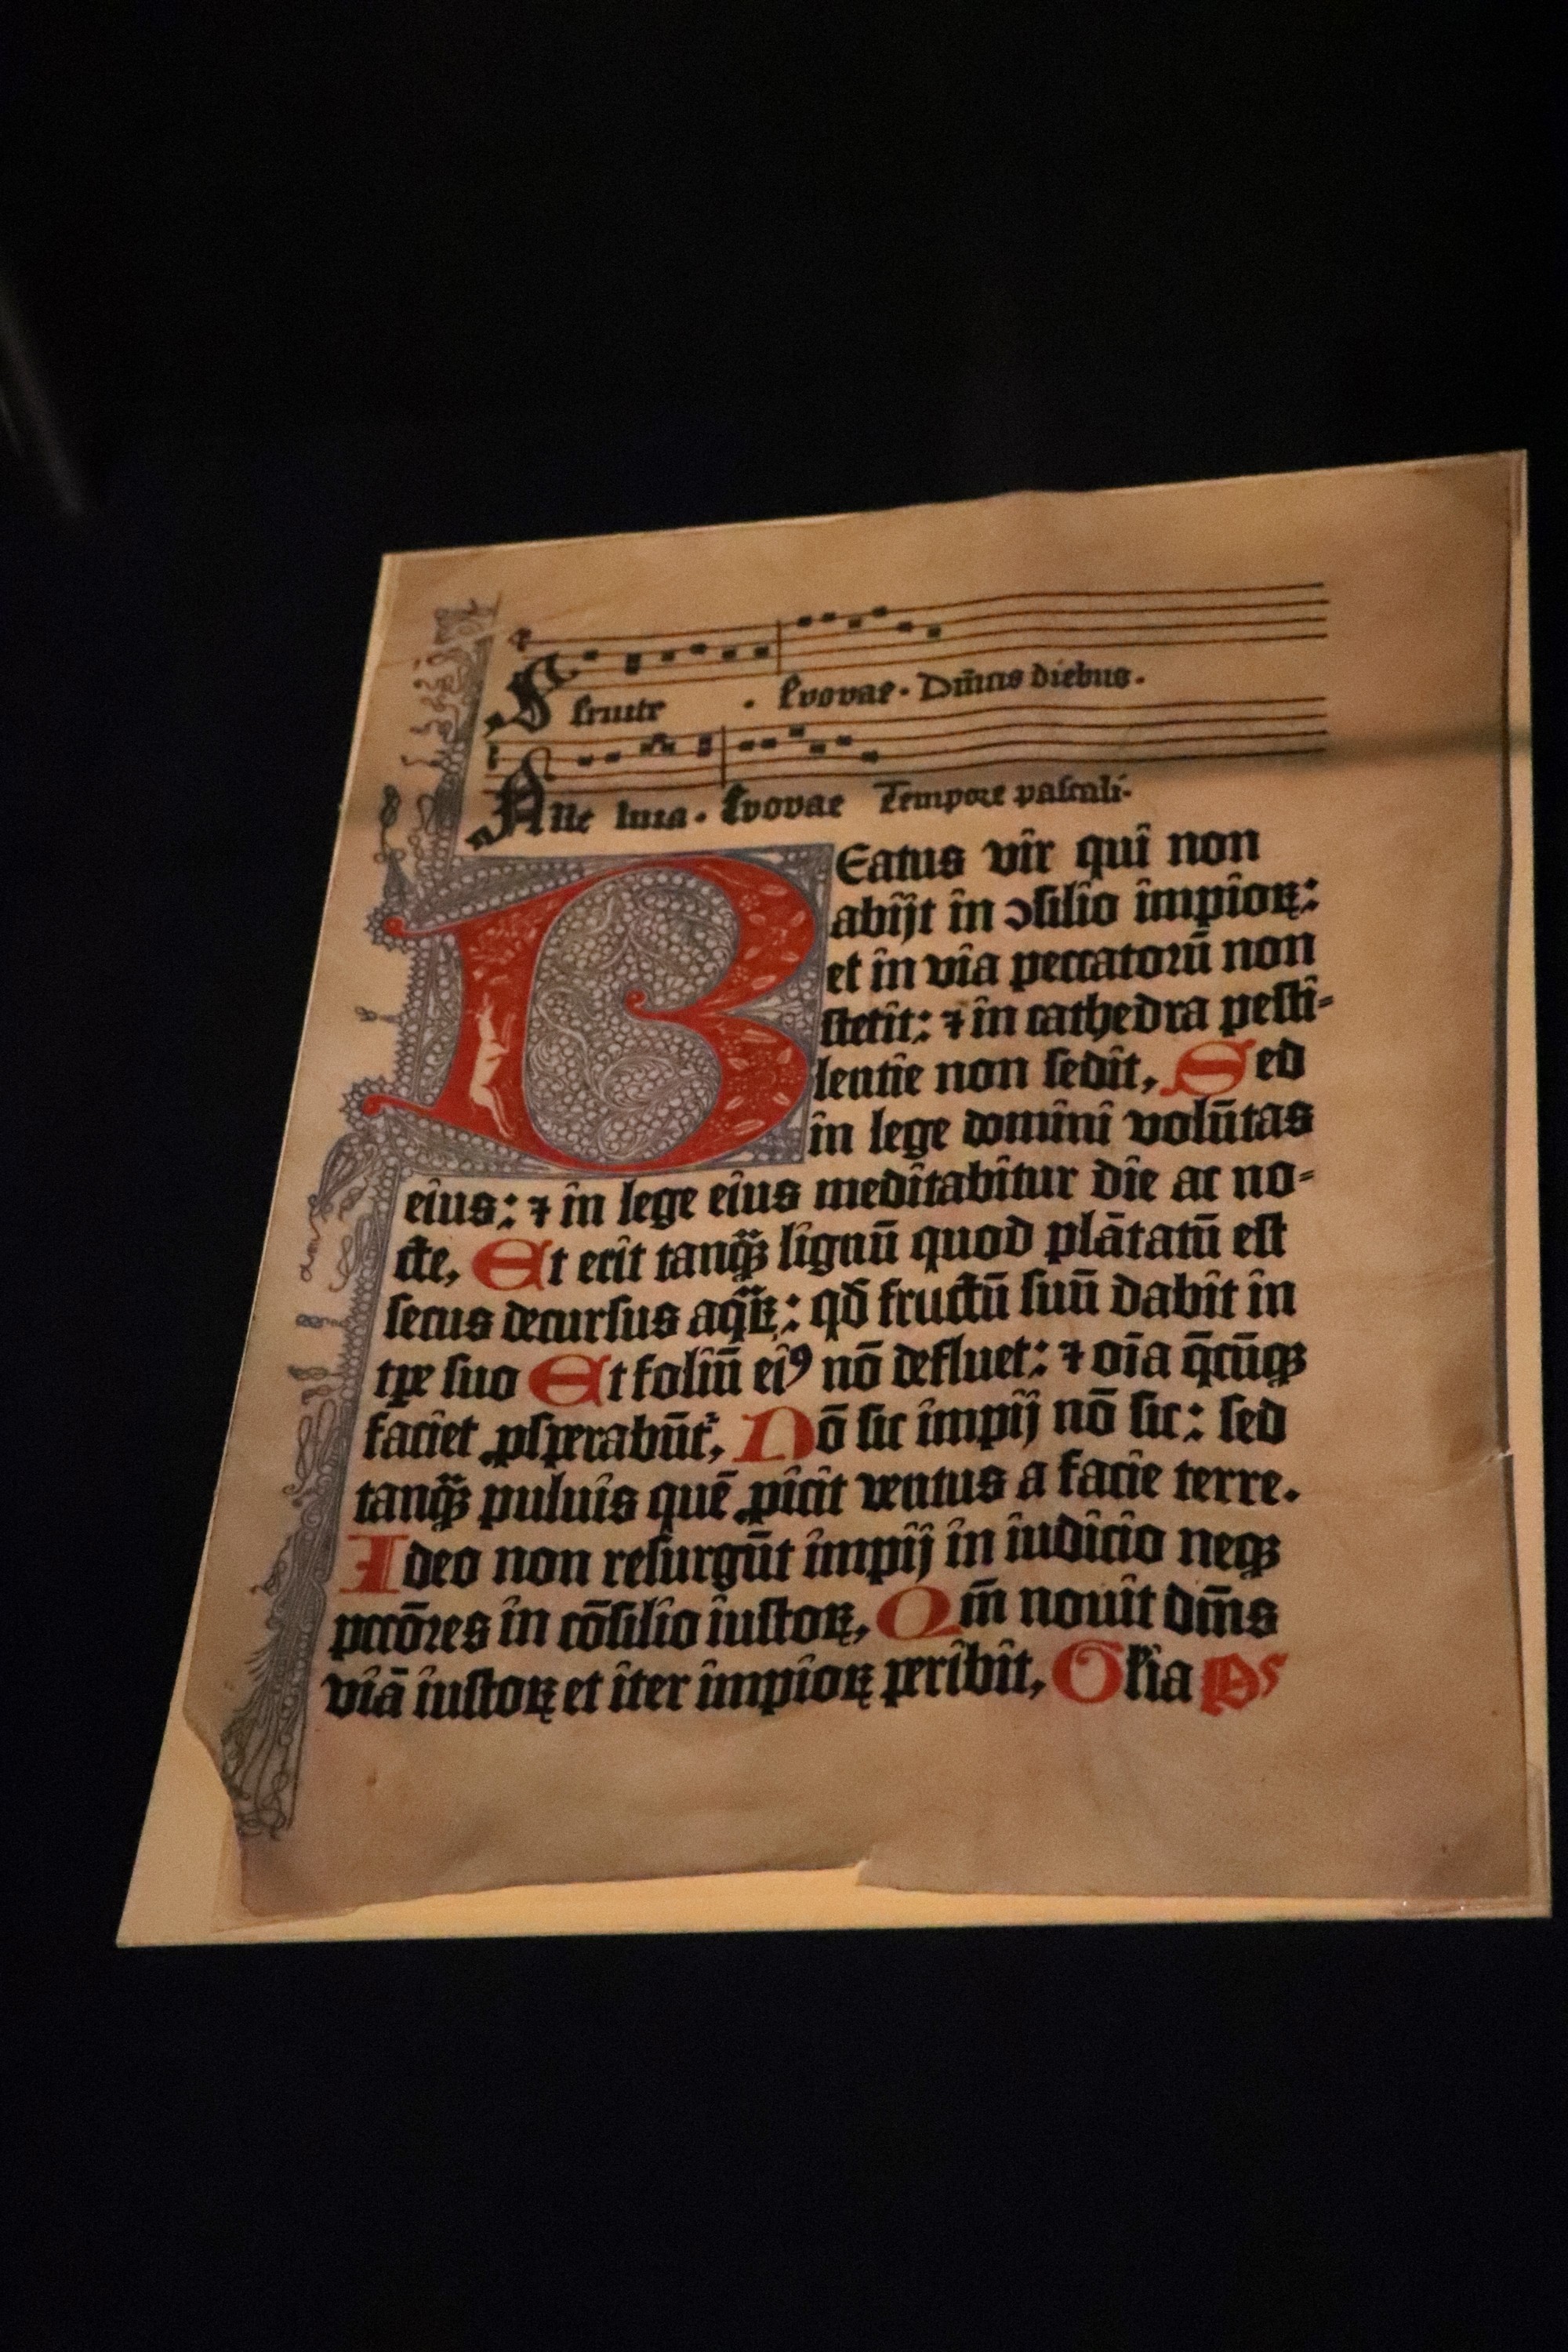 Seruite . Evovae. Dn̄icis diebus.
Alle luia. Evovae Tempore paſcali.
BEatus vir qui non
abijt in ↄſilio impioꝝ:
et in via peccatorū non
ſtetit: ⁊ in cathedra peſti-
lentie non ſedit, Sed
in lege domini volūtas
eius: ⁊ in lege eius meditabitur die ac no-
cte, Et erit tanqͣꝫ lignū quod plātatū eſt
ſecus decurſus aqͣꝝ: qd̄ fructū ſuū dabit in
tꝑe ſuo Et foliū eiꝰ nō defluet: ⁊ oīa q̄cūqꝫ
faciet ꝓſꝑerabūt᷑, Nō ſic impij nō ſic: ſed
tanqͣꝫ puluis quē ꝓicit ventus a facie terre.
Ideo non reſurgūt impij in iudicio neqꝫ
pccōres in cōſilio iuſtoꝝ, Qm̄ nouit dn̄s
viā iuſtoꝝ et iter impioꝝ peribit, Gl̓ia Ps